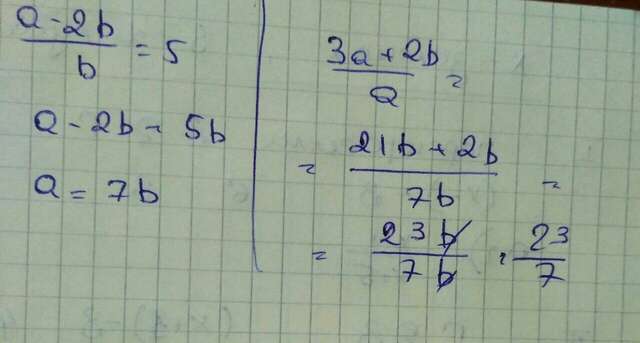 a - 2b / b = 5
a - 2b - 5b
a = 7b
3a + 2b / a =
= 21b + 2b / 7b =
= 23b / 7b = 23 / 7